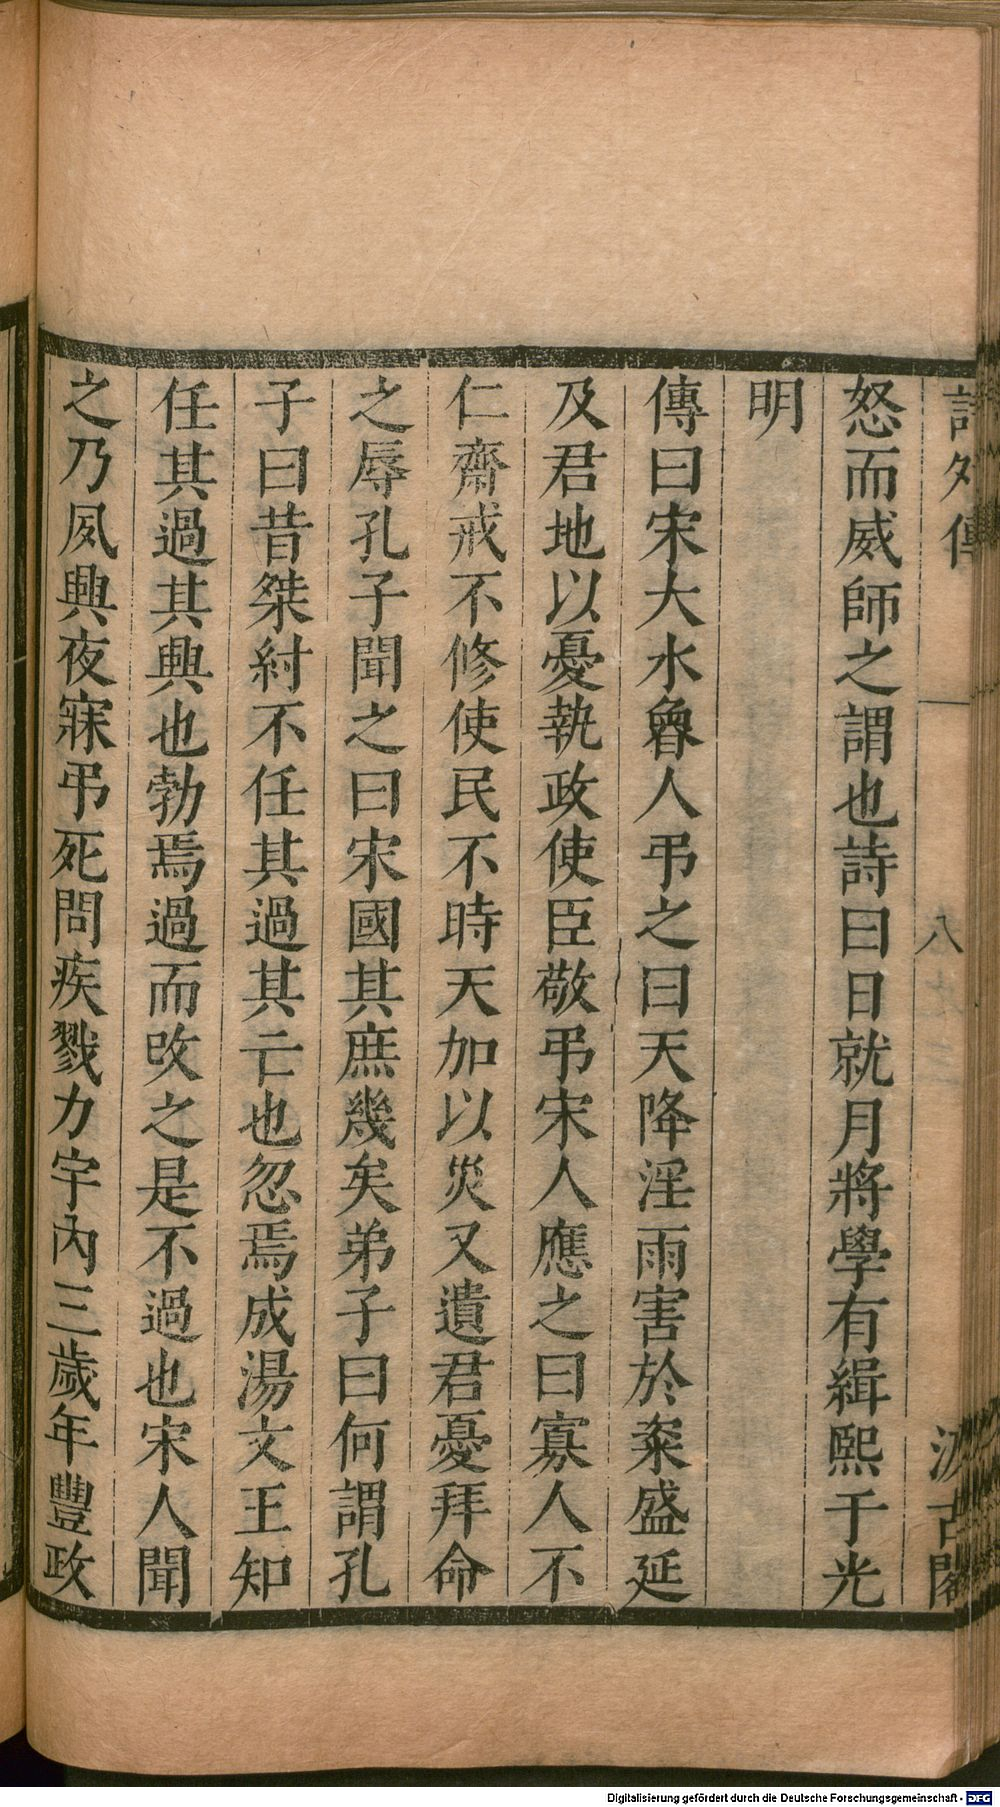 詩外傳 八 汲古閣
怒而威師之謂也詩曰日就月將學有緝熙于光
明
傳曰宋大水魯人弔之曰天降淫雨害於粢盛延
及君地以憂執政使臣敬弔宋人應之曰寡人不
仁齋戒不修使民不時天加以災又遺君憂拜命
之辱孔子聞之曰宋國其庶幾矣弟子曰何謂孔
子曰昔桀紂不任其過其亡也忽焉成湯文王知
任其過其興也勃焉過而改之是不過也宋人聞
之乃夙興夜寐弔死問疾戮力宇內三歲年豐政
Digitalisierung gefördert durch die Deutsche Forschungsgemeinschaft - DFG